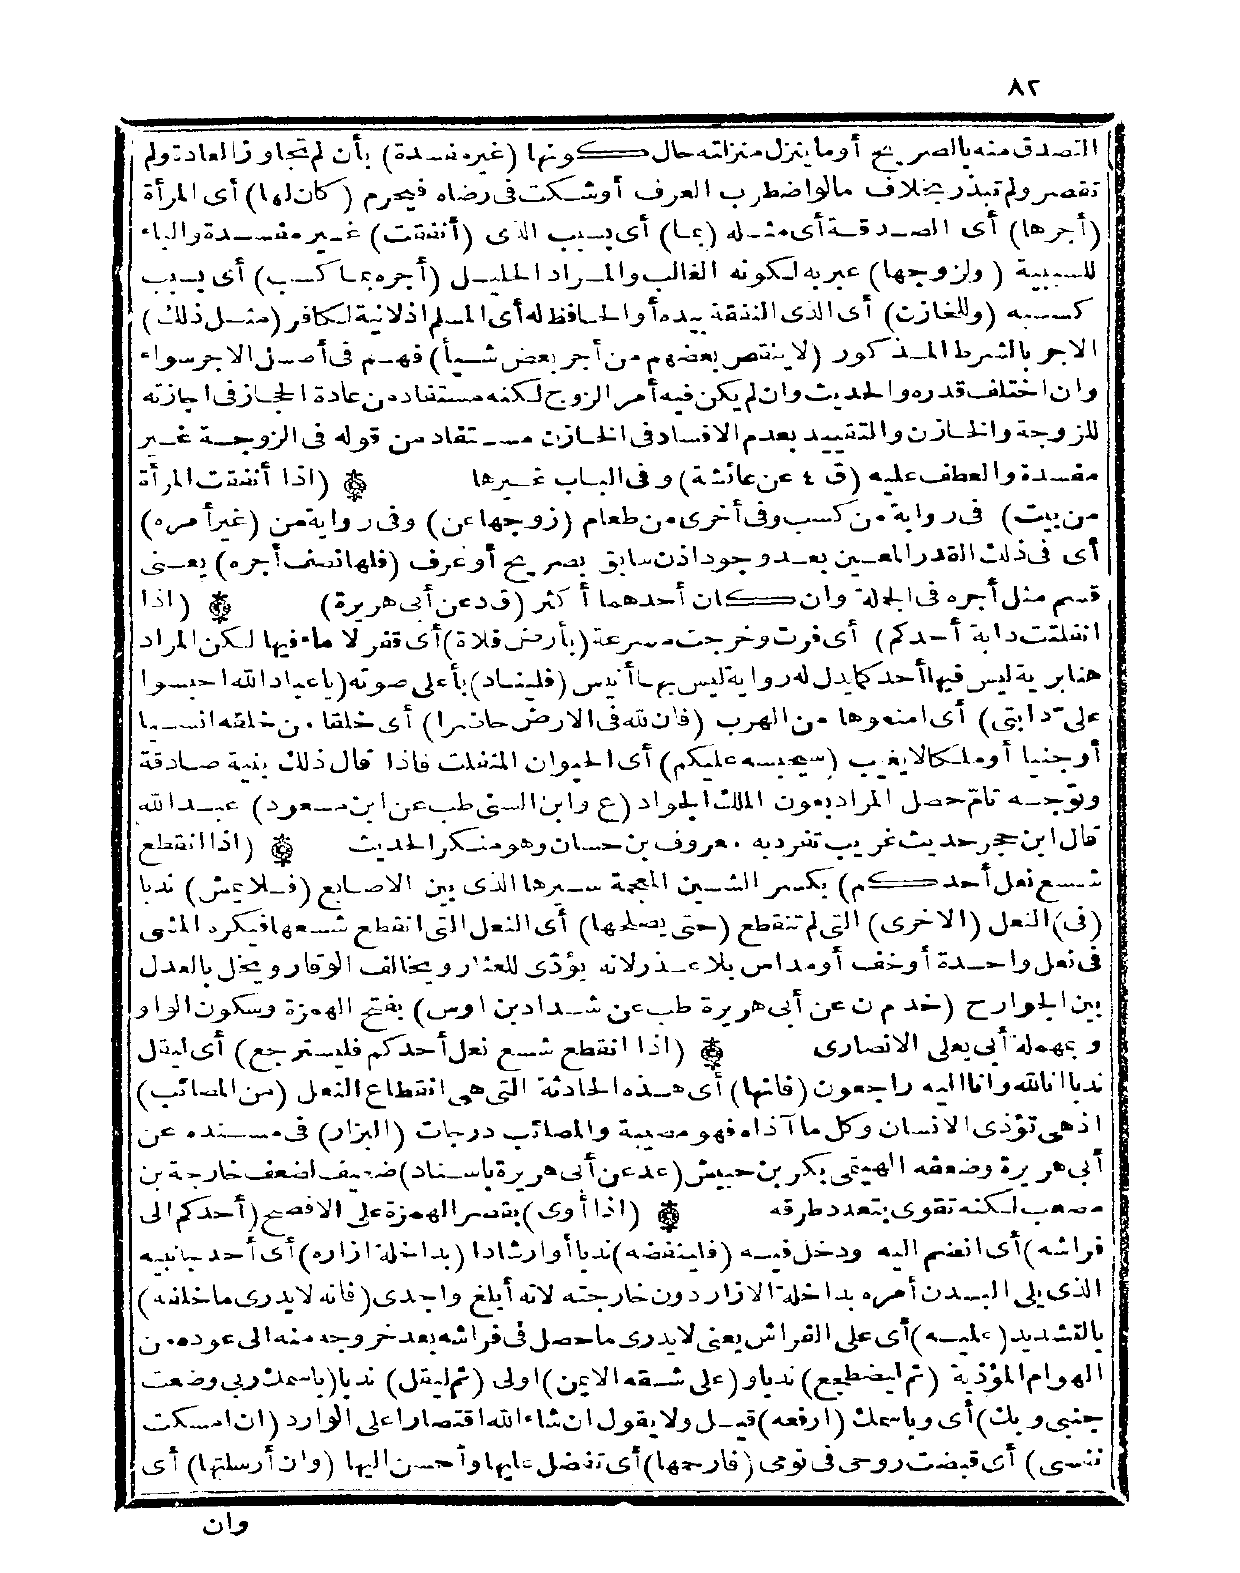 ٨٢
التصدق منه بالصريح أو ما ينزل منزلته حال كونها (غير مفسدة) بأن لم تتجاوز العادة ولم
تقصر ولم تبذر بخلاف ما لو اضطرب العرف أو شكت في رضاه فيحرم (كان لها) أى المرأة
(أجرها) أى الصدقة أى مثله (بما) أى بسبب الذى (أنفقت) غير مفسدة والباء
للسببية (ولزوجها) عبر به لكونه الغالب والمراد الحليل (أجره بما كسب) أى بسبب
كسبه (وللخازن) أى الذى النفقة بيده أو الحافظ له أى المسلم اذ لا نية لكافر (مثل ذلك)
الاجر بالشرط المذكور (لا ينقص بعضهم من أجر بعض شيأ) فهم فى أصل الاجر سواء
وان اختلف قدره والحديث وان لم يكن فيه أمر الزوج لكنه مستفاد من عادة الحجاز فى اجازته
للزوجة والخازن والتقييد بعدم الافساد فى الخازن مستفاد من قوله فى الزوجة غير
مفسدة والعطف عليه (ق ٤ عن عائشة) وفى الباب غيرها (اذا أنفقت المرأة
من بيت) فى رواية من كسب وفى أخرى من طعام (زوجها عن) وفى رواية من (غير أمره)
أى فى ذلك القدر المعين بعد وجود اذن سابق بصريح أو عرف (فلها نصف أجره) يعنى
قسم مثل أجره فى الجملة وان كان أحدهما أكثر (ق د عن أبى هريرة) (اذا
انفلتت دابة أحدكم) أى فرت وخرجت مسرعة (بأرض فلاة) أى قفر لا ماء فيها لكن المراد
هنا برية ليس فيها أحد كما يدل له رواية ليس بها أنيس (فليناد) بأعلى صوته (يا عباد الله احبسوا
على دابتى) أى امنعوها من الهرب (فان لله فى الارض حاضرا) أى خلقا من خلقه انسيا
أو جنيا أو ملكا لا يغيب (سيحبسه عليكم) أى الحيوان المنفلت فاذا قال ذلك بنية صادقة
وتوجه تام حصل المراد بعون الملك الجواد (ع وابن السنى طب عن ابن مسعود) عبد الله
قال ابن حجر حديث غريب تفرد به معروف بن حسان وهو منكر الحديث (اذا انقطع
شسع نعل أحدكم) بكسر الشين المعجمة سيرها الذى بين الاصابع (فلا يمش) ندبا
(فى) النعل (الاخرى) التى لم تنقطع (حتى يصلحها) أى النعل التى انقطع شسعها فيكره المشى
فى نعل واحدة أو خف أو مداس بلا عذر لانه يؤدى للعثار ويخالف الوقار ويخل بالعدل
بين الجوارح (خد م ن عن أبى هريرة طب عن شداد بن اوس) بفتح الهمزة وسكون الواو
وبمهملة أبى يعلى الانصارى (اذا انقطع شسع نعل أحدكم فليسترجع) أى ليقل
ندبا انا لله وانا اليه راجعون (فانها) أى هذه الحادثة التى هى انقطاع النعل (من المصائب)
اذ هى تؤذى الانسان وكل ما آذاه فهو مصيبة والمصائب درجات (البزار) فى مسنده عن
أبى هريرة وضعفه الهيتمى بكر بن حبيش (عد عن أبى هريرة باسناد) ضعيف اضعف خارجة بن
مصعب لكنه تقوى بتعدد طرقه (اذا أوى) بقصر الهمزة على الافصح (أحدكم الى
فراشه) أى انضم اليه ودخل فيه (فلينفضه) ندبا أو ارشادا (بداخلة ازاره) أى أحد جانبيه
الذى يلى البدن أمره بداخلة الازار دون خارجته لانه أبلغ واجدى (فانه لا يدرى ما خلفه)
بالتشديد (عليه) أى على الفراش يعنى لا يدرى ما حصل فى فراشه بعد خروجه منه الى عوده من
الهوام المؤذية (ثم ليضطجع) ندبا و (على شقه الايمن) اولى (ثم ليقل) ندبا (باسمك ربى وضعت
جنبى وبك) أى وباسمك (ارفعه) قيل ولا يقول ان شاء الله اقتصارا على الوارد (ان امسكت
نفسى) أى قبضت روحى فى نومى (فارحمها) أى تفضل عليها وأحسن اليها (وان أرسلتها) أى
وان